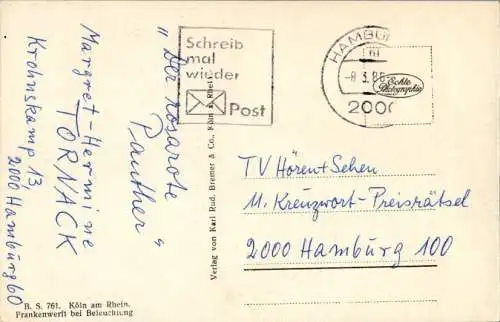 Schreib
mal
wieder
Post
HAMBURG
61
-8.3.86
2000
Echte
Photographie
"Der rosarote
Panther"
Margret-Hermine
TORNACK
Krohnskamp 13,
2000 Hamburg 60
Verlag von Karl Rud. Bremer & Co., Köln a. Rhein.
TV Hören+Sehen
M. Kreuzwort-Preisrätsel
2000 Hamburg 100
B. S. 761. Köln am Rhein.
Frankenwerft bei Beleuchtung